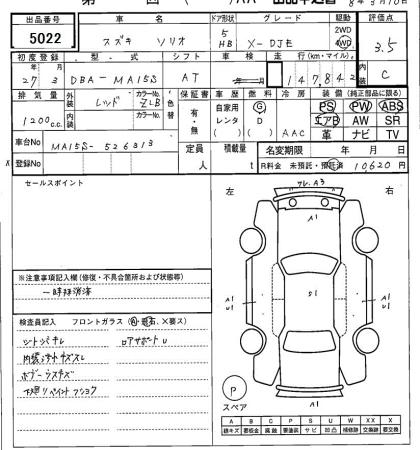 8年3月10日
出品番号 車名 ドア形状 グレード 駆動 評価点
5022 スズキ ソリオ 5 HB X-DJE 2WD 4WD 3.5
初度登録 型式 シフト 車検 走行(km・マイル) 内装
27年3月 DBA-MA15S AT 147,842 C
排気量 外装 カラーNo. 色替 保証書 車歴 燃料 冷房 装備(純正部品に限る)
1200c.c. レッド ZLB 有・無 自家用 G PS PW ABS
内装 カラーNo. レンタ D AAC エアB AW SR
革 ナビ TV
車台No MA15S-526313 定員 積載量 名変期限 年月日
登録No 人 t R料金 未預託・預託済 10620円
セールスポイント
左 右
A3
A1
※注意事項記入欄(修復・不具合箇所および状態等)
一時抹消済
A1 U1 S1 A1 U1
検査員記入 フロントガラス(A・飛石、X要ス)
シートシガレ ロアサポートU
内装キズスレ
ボデーウスキズ
下廻りペイント
P
スペア
A1
A B C P S U W XX X
線キズ 要板金 腐蝕 要塗装 サビ 凹凸 補修跡 交換済 要交換